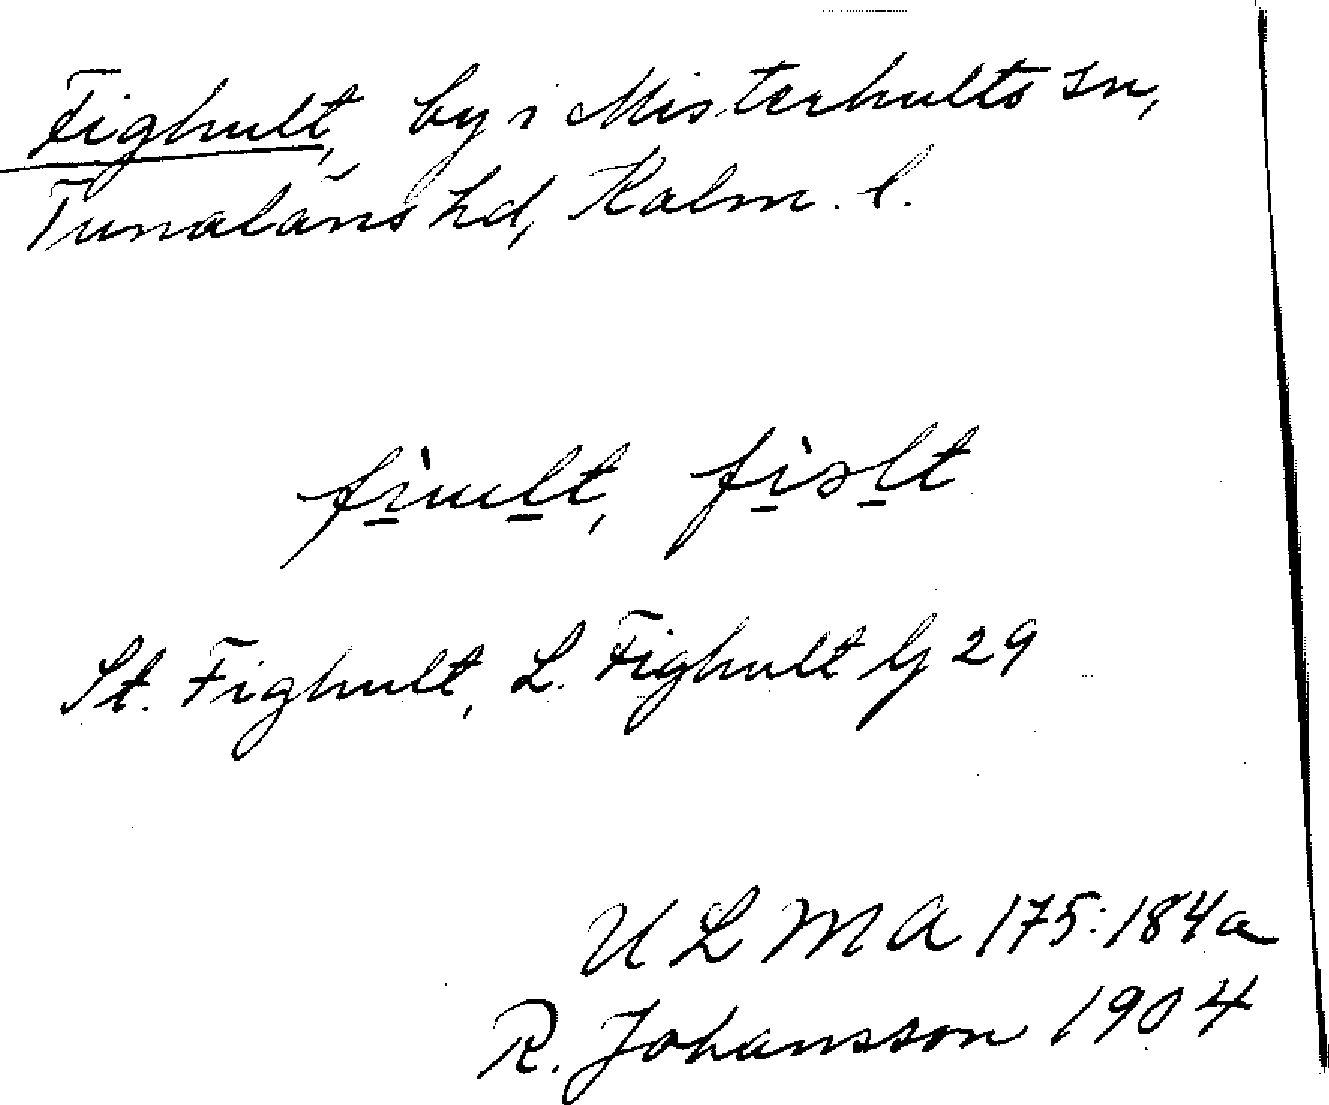 Fighult, by i Misterhults sn,
Tunaläns hd, Kalm. l.
fi̱uḻt, fi̱əḻt
St. Fighult, L. Fighult G 29
ULMA 175:184a
R. Johansson 1904